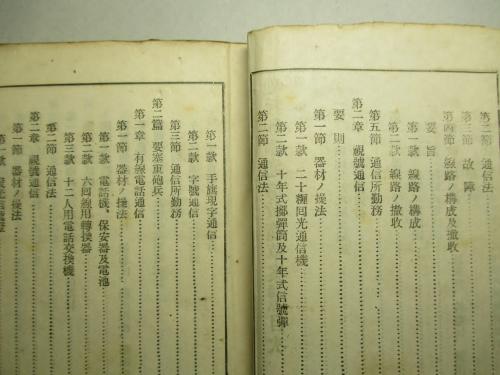 第二節 通信法
第三節 故障
第四節 線路ノ構成及撤收
要旨
第一款 線路ノ構成
第二款 線路ノ撤收
第五節 通信所勤務
第二章 視號通信
要則
第一節 器材ノ操法
第一款 二十糎回光通信機
第二款 十年式擲彈筒及十年式信號彈
第二節 通信法
第一款 手旗現字通信
第二款 字號通信
第三節 通信所勤務
第二篇 要塞重砲兵
第一章 有線電話通信
第一節 器材ノ操法
第一款 電話機、保安器及電池
第二款 六回線用轉換器
第三款 十二人用電話交換機
第二節 通信法
第二章 視號通信
第一節 器材ノ操法